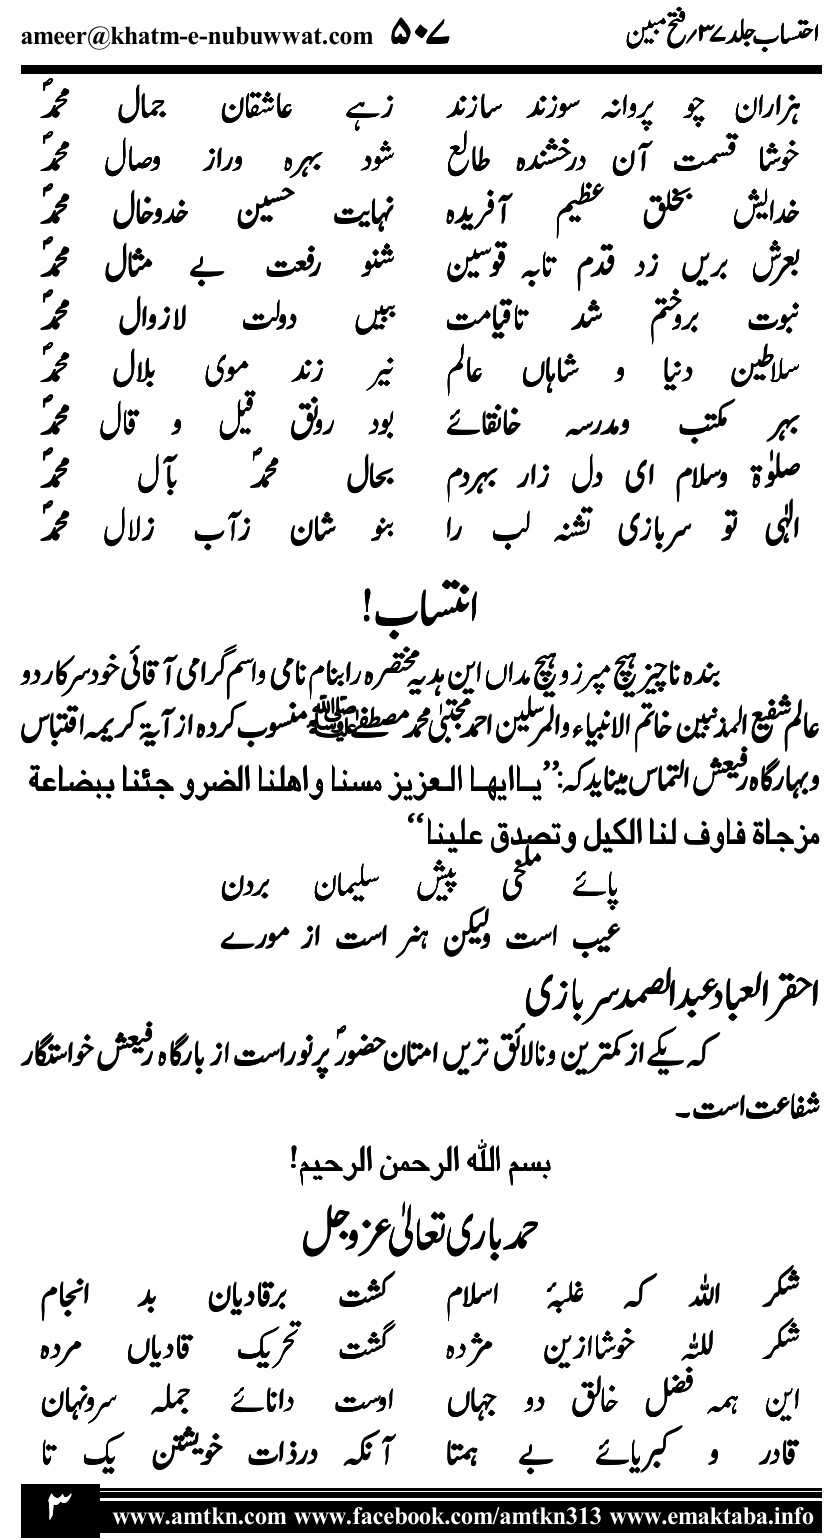 احتساب جلد ۳۷ر فتح مبین ۵۰۷ ameer@khatm-e-nubuwwat.com
ہزاران چو پروانہ سوزند سازند زہے عاشقان جمال محمدؐ
خوشا قسمت آن درخشندہ طالع شود بہرہ وراز وصال محمدؐ
خدایش بخلق عظیم آفریدہ نہایت حسین خدوخال محمدؐ
بعرش بریں زد قدم تابہ قوسین شنو رفعت بے مثال محمدؐ
نبوت بروختم شد تاقیامت ببیں دولت لازوال محمدؐ
سلاطین دنیا و شاہاں عالم نیر زند موی بلال محمدؐ
بہر مکتب ومدرسہ خانقائے بود رونق قیل و قال محمدؐ
صلوٰۃ وسلام ای دل زار بہردم بحال محمدؐ بآل محمدؐ
الٰہی تو سربازی تشنہ لب را بنو شان زآب زلال محمدؐ
انتساب!
بندہ ناچیز ہیچ میرز و ہیچ مداں این ہدیہ مختصرہ رابنام نامی واسم گرامی آقائی خود سرکار دو
عالم شفیع المذنبین خاتم الانبیاء والمرسلین احمد مجتبیٰ محمد مصطفےٰ ﷺ منسوب کردہ از آیۃ کریمہ اقتباس
وبہارگاہ رفیعش التماس مینماید کہ: ’’یاایها العزیز مسنا واهلنا الضرو جئنا ببضاعة
مزجاة فاوف لنا الکیل وتصدق علینا‘‘
پائے ملخی پیش سلیمان بردن
عیب است ولیکن ہنر است از مورے
احقر العباد عبدالصمد سربازی
کہ یکے از کمترین ونالائق تریں امتان حضورؐ پرنور است از بارگاہ رفیعش خواستگار
شفاعت است۔
بسم الله الرحمن الرحیم!
حمد باری تعالیٰ عزوجل
شکر اللہ کہ غلبۂ اسلام کشت برقادیان بد انجام
شکر للہ خوشاازین مژدہ گشت تحریک قادیاں مردہ
این ہمہ فضل خالق دو جہاں اوست دانائے جملہ سرونہان
قادر و کبریائے بے ہمتا آنکہ درذات خویشتن یک تا
۳ www.amtkn.com www.facebook.com/amtkn313 www.emaktaba.info